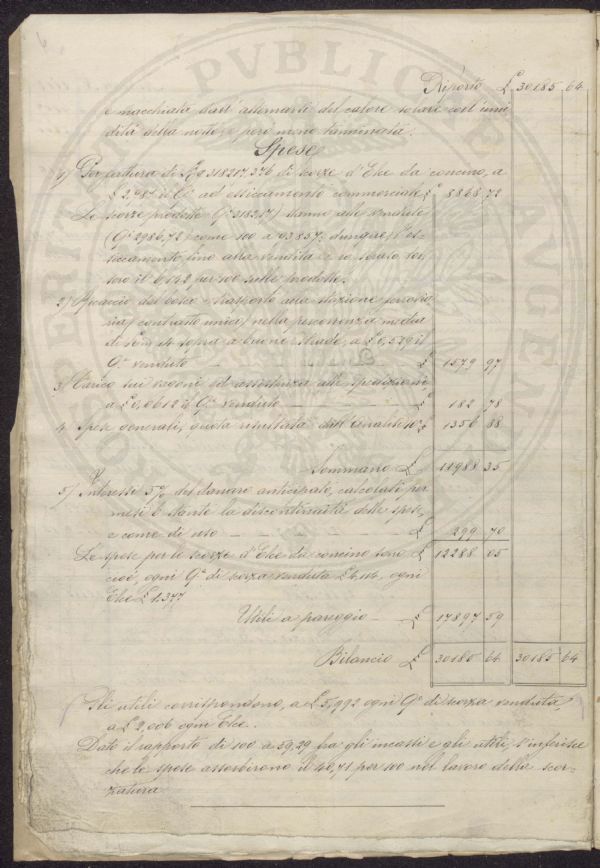 Riporto £ 30185 64
e macchiata dall'alternarsi del calore solare coll'umi
dità della notte, e però meno tanninata.
Spese
1) Per fattura di Q.i 318217.376 di scorze d'Elce da concino, a
£ 2,787 il Q.le ad essiccamento commerciale £ 8868,72
Le scorze prodotte (Q.i 3182,17) stanno alle vendute
(Q.i 2986,72) come 100 a 93.857; dunque l'es-
siccamento fino alla vendita
il 6.142 per 100 sulle prodotte.
2) del bosco e trasporto alla stazione ferrovia
ria (contratto unico) nella percorrenza media
di a buone strade, a £ 0,529 il
Q.le venduto £ 1579 97
3) Carico sui vagoni ed assistenza alle spedizioni,
a £ 0,0612 il Q.le venduto £ 182 78
4) Spese generali, quota risultata dall'Analisi £ 1356 88
Sommano £ 11988 35
5) Interessi 5% del danaro anticipato, calcolati per
mesi 6 stante la discontinuità delle spese,
e come di uso £ 299 70
Le spese per le scorze d'Elce da concino sono £ 12288 05
cioè, ogni Q.le di scorza venduta £ 4,114, ogni
Elce £ 1.377
Utili a pareggio £ 17897 59
Bilancio £ 30185 64 30185 64
Gli utili corrispondono, a £ 5,992 ogni Q.le di scorza venduta
a £ 2,006 ogni Elce.
Dato il rapporto di 100 a 59,29 fra gli incassi e gli utili, s'inferisce
che le spese assorbirono il 40,71 per 100 nel lavoro della scor-
zatura